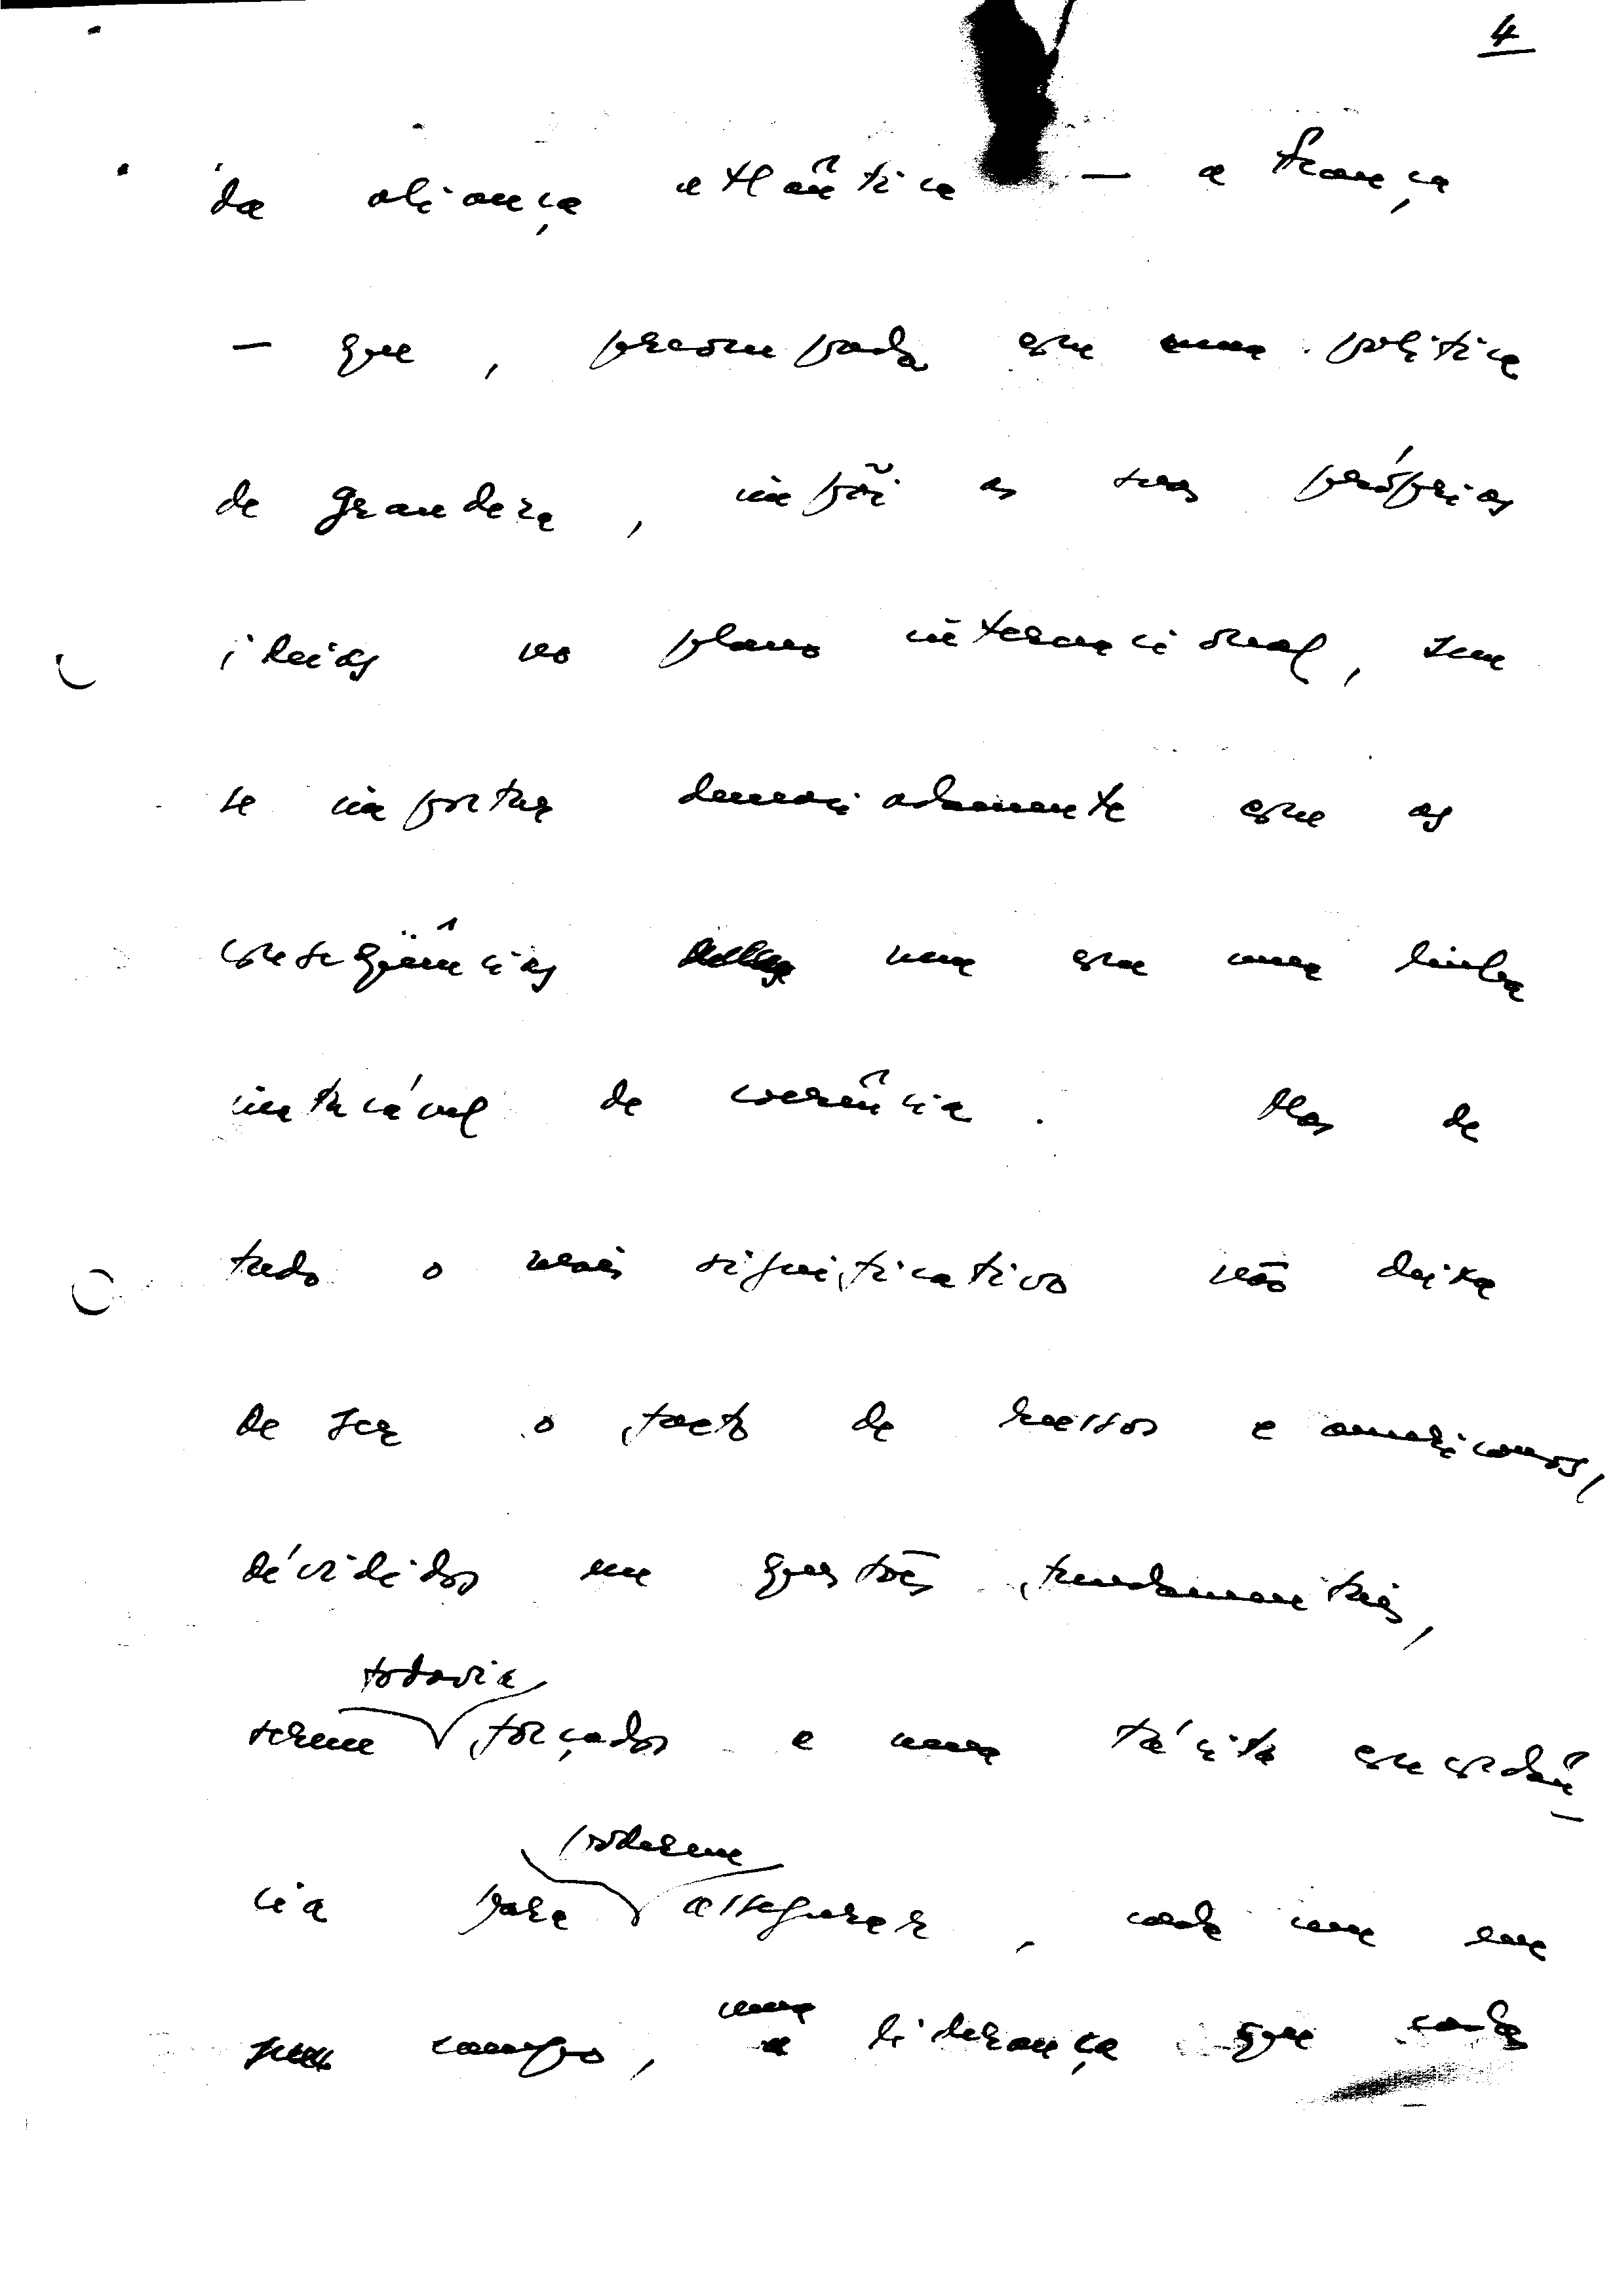 4
da aliança atlântica — a França
— que, preocupada com uma política
de grandeza, impõi as suas próprias
ideias no plano internacional, sem
se importar demasiadamente com as
conseqüências nem com uma linha
intocável de coerência. Mas de
tudo o mais significativo não deixa
de ser o facto de russos e americanos,
dívididos em questões fundamentais,
todavia
serem forçados a uma tácita concordân-
poderem
cia para assegurar, cada um em
uma
seu campo, a liderança que cada